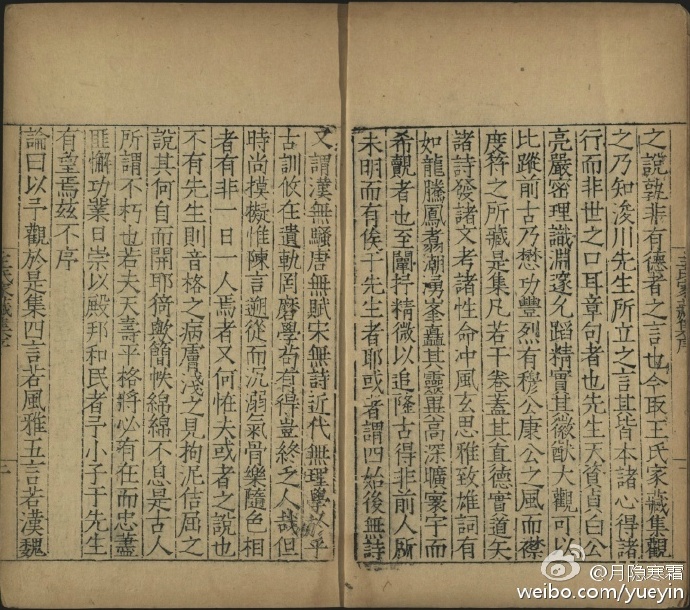 之說孰非有德者之言也今取王氏家藏集觀
之乃知浚川先生所立之言其皆本諸心得諸
行而非世之口耳章句者也先生天資貞白公
亮嚴密理識淵邃允蹈精實其徽猷大觀可以
比蹤前古乃懋功豐烈有穆公康公之風而襟
度符之所藏是集凡若干卷蓋其直德實道矢
諸詩發諸文考諸性命冲風玄思雅致雄詞有
如龍騰鳳翥潮湧峯矗其靈異高深曠寰宇而
希覯者也至闡抒精微以追隆古得非前人所
未明而有俟于先生者耶或者謂四始後無詩
又謂漢無騷唐無賦宋無詩近代無理學以乎
古訓攸在遺軌罔磨學尚有得豈終乏人哉但
時尚摸擬惟陳言遡從而沉溺氣骨樂隨色相
者有非一日一人焉者又何恠夫或者之說也
不有先生則音格之病膚淺之見拘泥佶屈之
說其何自而開耶猗歟簡帙綿綿不息是古人
所謂不朽也若夫天壽平格將必有在而忠藎
匪懈功業日崇以殿邦和民者予小子于先生
有望焉茲不序
論曰以予觀於是集四言若風雅五言若漢魏
王氏家藏集序
月隐寒霜
weibo.com/yueyin